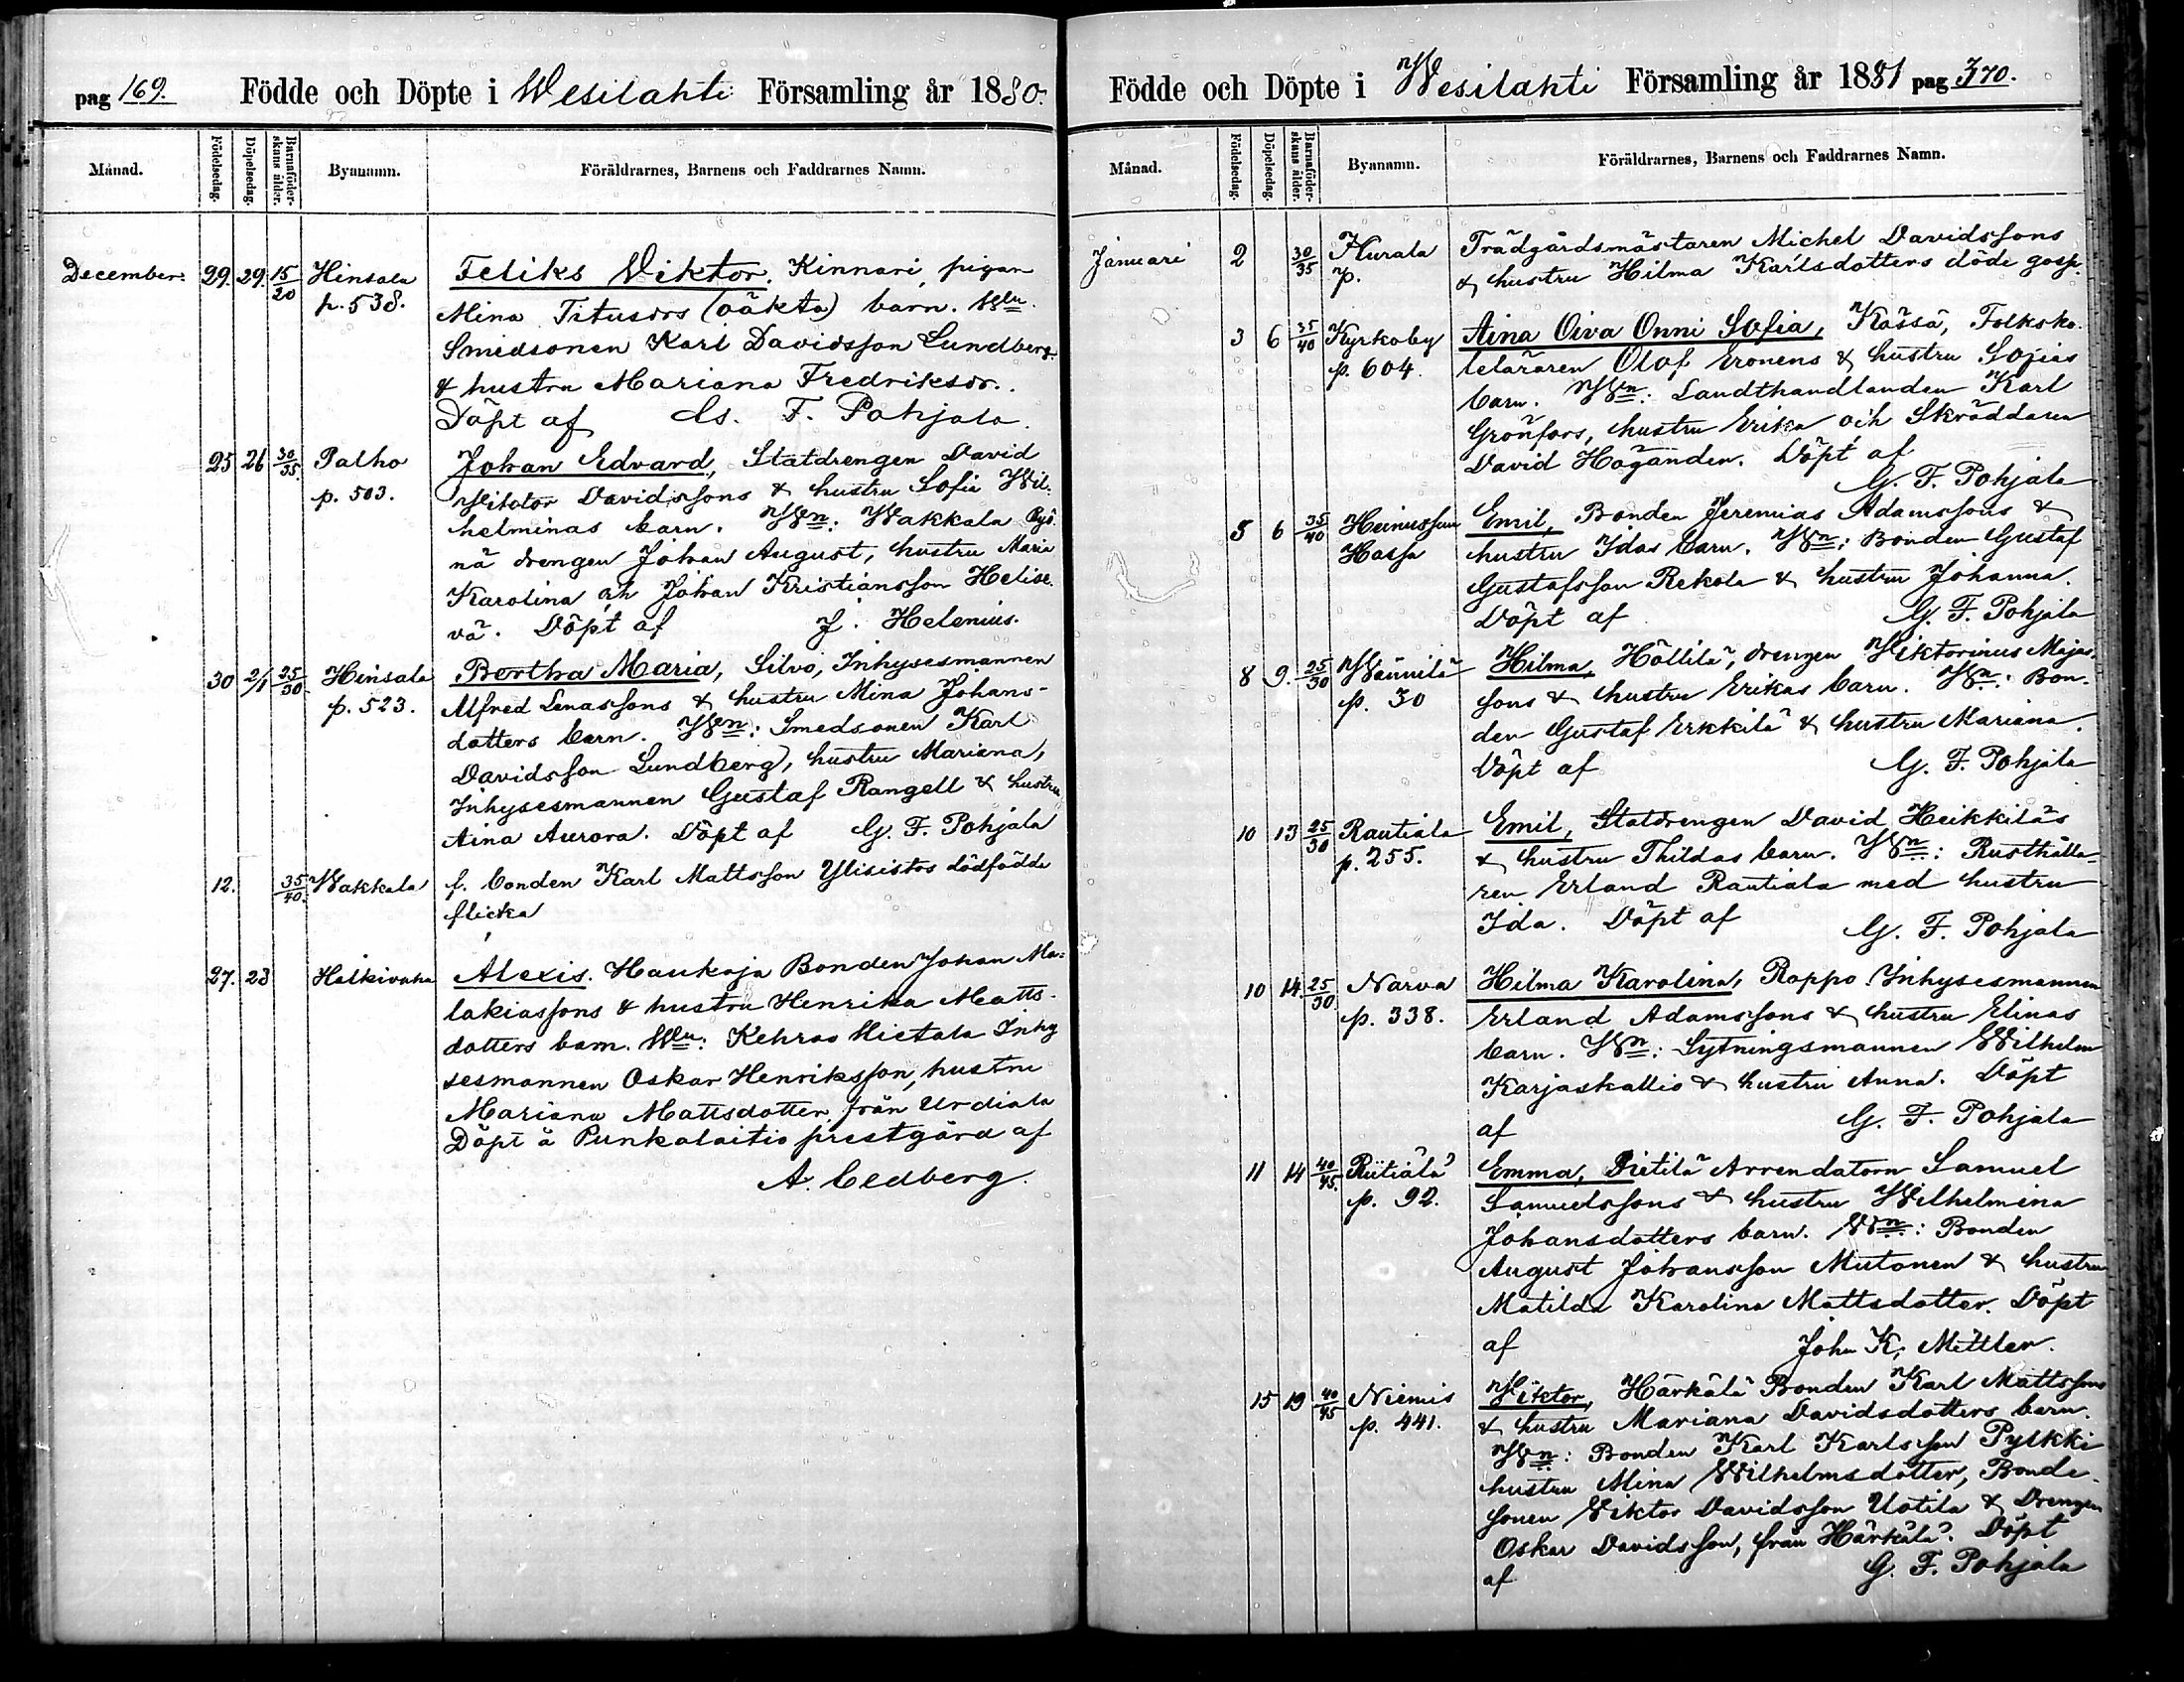 pag 169. Födde och Döpte i Wesilahti Församling år 1880.
Månad. Födelsedag. Döpelsedag. Barnaföderskans ålder. Byanamn. Föräldrarnes, Barnens och Faddrarnes Namn.
December. 29. 29. 15/20 Hinsala Feliks Viktor. Kinnari, pigan
p. 538. Mina Titusdrs (oäkta) barn. Wn
Smedsonen Karl Davidsson Lundberg
& hustru Mariana Fredriksdr.
Döpt af Gs. F. Pohjala.
25 26 30/35. Palho Johan Edvard, Statdrengen David
p. 503. Viktor Davidssons & hustru Sofia Wil-
helminas barn. Wn: Wakkala
nä drengen Johan August, hustru Maria
Karolina och Johan Kristiansson Helise-
vä. Döpt af J. Helenius.
30 2/1 25/30 Hinsala Bertha Maria, Silvo, Inhysesmannen
p. 523. Alfred Lenassons & hustru Mina Johans-
dotters barn. Wn: Smedsonen Karl
Davidsson Lundberg, hustru Mariana,
Inhysesmannen Gustaf Rangell & hustru
Aina Aurora. Döpt af G. F. Pohjala
12. 35/40. Wakkala f. bonden Karl Mattsson Ylisistos dödfödda
flicka
27. 28 Halkivaha Alexis. Haukaja Bonden Johan Ma-
lakiassons & hustru Henrika Matts-
dotters barn. Wn: Kehras Hietala Inhy
sesmannen Oskar Henriksson, hustru
Mariana Mattsdotter från Urdiala
Döpt å Punkalaitio prestgård af
A. Cedberg.
Födde och Döpte i Wesilahti Församling år 1881 pag 370.
Månad. Födelsedag. Döpelsedag. Barnaföderskans ålder. Byanamn. Föräldrarnes, Barnens och Faddrarnes Namn.
Januari 2 30/35 Hurala Trädgårdsmästaren Michel Davidssons
p. & hustru Hilma Karlsdotters döde gosse.
3 6 35/40 Kyrkoby Aina Oiva Onni Sofia, Kässä, Folksko-
p. 604. leläraren Olof Eronens & hustru Sofias
barn. Wn: Landthandlanden Karl
Grönfors, hustru Erika och Skräddaren
David Högänden. Döpt af
G. F. Pohjala
5 6 35/40 Heinussuu Emil, Bonden Jeremias Adamssons &
Hassa hustru Idas barn. Wn: Bonden Gustaf
Gustafsson Rekola & hustru Johanna.
Döpt af G. F. Pohjala
8 9. 25/30 Wännilä Hilma, Höllilä, drengen Viktorinus Majas-
p. 30 sons & hustru Erikas barn. Wn: Bon-
den Gustaf Erkkilä & hustru Mariana.
Döpt af G. F. Pohjala
10 13 25/30 Rautiala Emil, Statdrengen David Heikkiläs
p. 255. & hustru Thildas barn. Wn: Rusthålla-
ren Erland Rautiala med hustru
Ida. Döpt af G. F. Pohjala
10 14 25/30 Narva Hilma Karolina, Roppo Inhysesmannen
p. 338. Erland Adamssons & hustru Elinas
barn. Wn: Sytningsmannen Wilhelm
Karjaskallio & hustru Anna. Döpt
af G. F. Pohjala
11 14 40/45. Riitiälä Emma, Pietilä Arrendatorn Samuel
p. 92. Samuelssons & hustru Wilhelmina
Johansdotters barn. Wn: Bonden
August Johansson Mutonen & hustru
Matilda Karolina Mattsdotter. Döpt
af Joh. K. Mittler.
15 19 40/45 Niemis Viktor, Härkälä Bonden Karl Mattssons
p. 441. & hustru Mariana Davidsdotters barn.
Wn: Bonden Karl Karlsson Pylkki
hustru Mina Wilhelmsdotter, Bonde-
sonen Viktor Davidsson Uotila & Drengen
Oskar Davidsson, från Härkälä. Döpt
af G. F. Pohjala